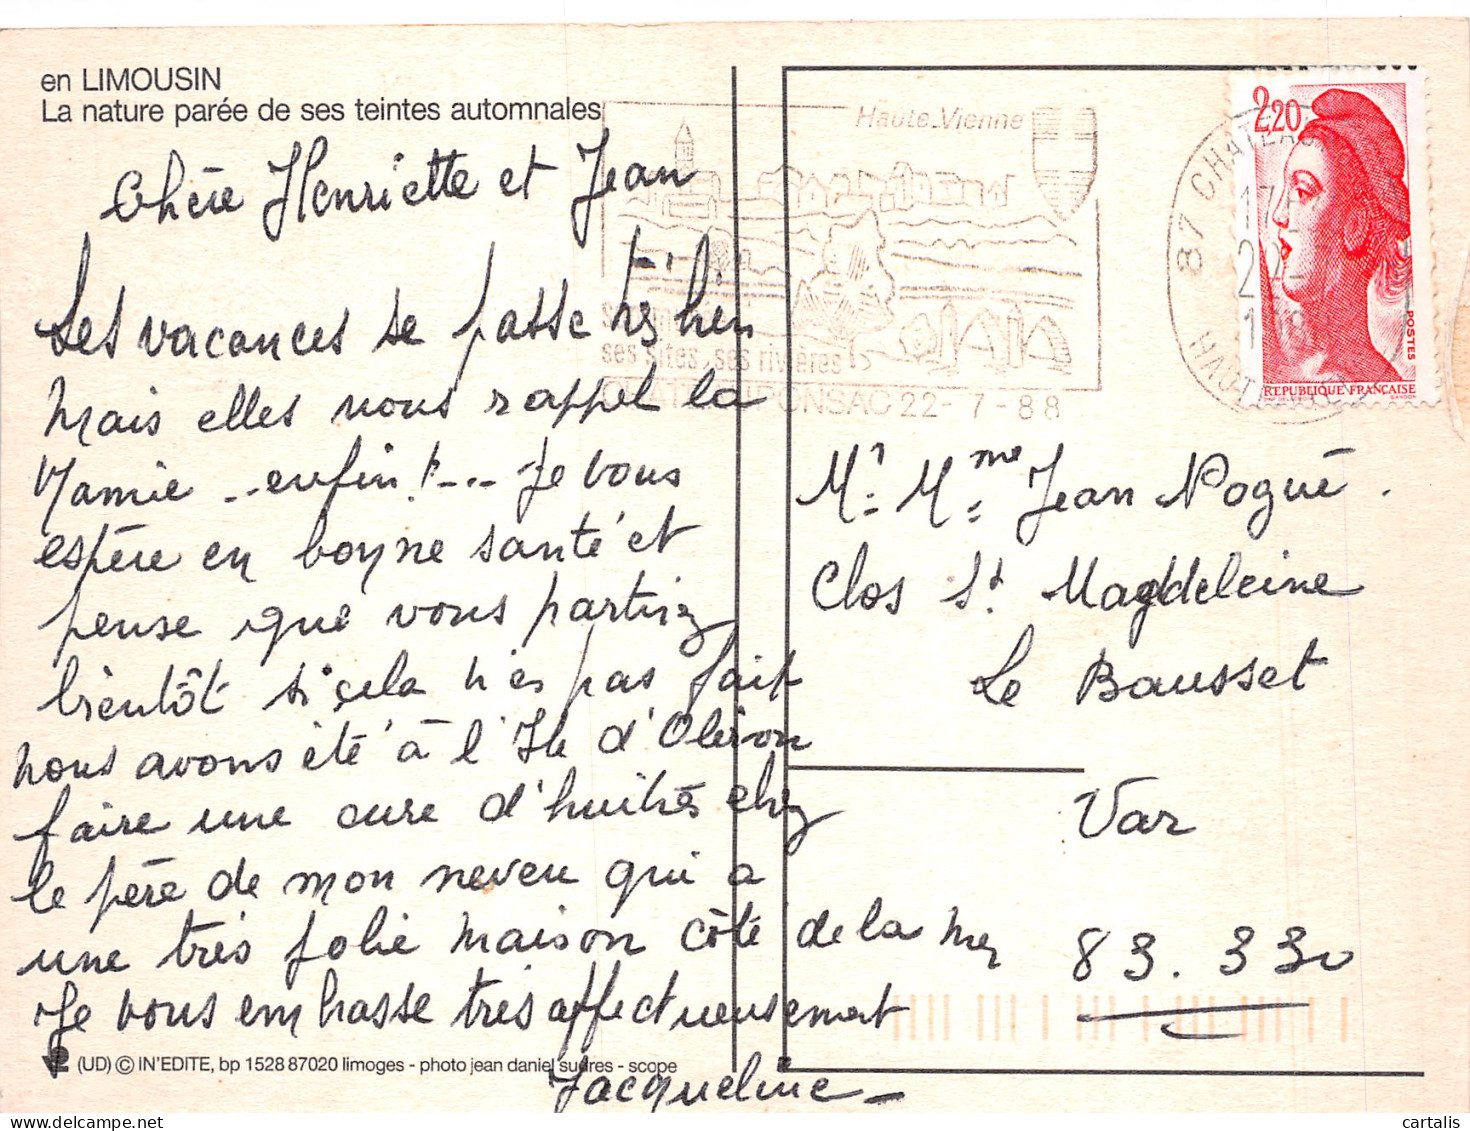 en LIMOUSIN
La nature parée de ses teintes automnales
Chère Henriette et Jean
Les vacances se passe très bien
mais elles nous rappel la
Mamie ... enfin!... Je vous
espère en bonne santé et
pense que vous partirez
bientôt si cela n'es pas fait
nous avons été à l'Ile d'Oléron
faire une cure d'huitres chez
le père de mon neveu qui a
une très jolie maison côté de la mer
Je vous embrasse très affectueusement
Jacqueline
(UD) © IN'EDITE, bp 1528 87020 limoges - photo jean daniel sudres - scope
Haute-Vienne
ses sites, ses rivières
PONSAC 22-7-88
87 CHATEAU
17
HAUTE
2,20
POSTES
REPUBLIQUE FRANÇAISE
Mr. Mme Jean Nogué.
Clos St. Magdeleine
Le Bausset
Var
83.330
cartalis